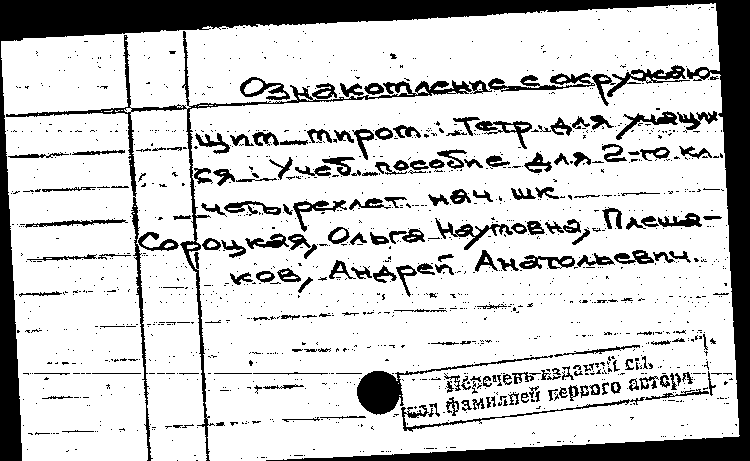 Ознакомление с окружаю-
щим миром : Тетр. для учащих-
ся : Учеб. пособие для 2-го кл.
четырехлет. нач. шк.
Сороцкая, Ольга Наумовна, Плеша-
ков, Андрей Анатольевич.
Перечень изданий см.
под фамилией первого автора